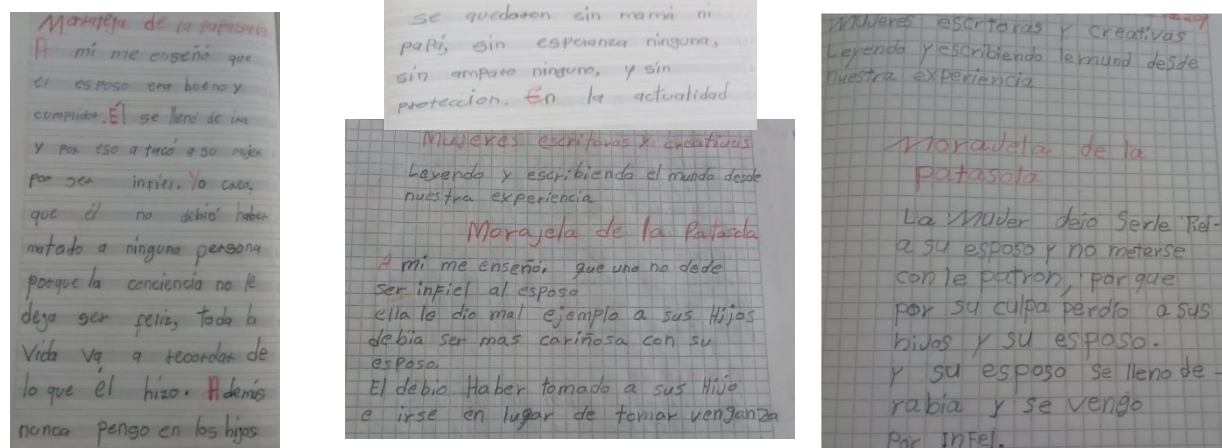 Morajeja de la papasola
A mi me enseñó que
el esposo era bueno y
cumplidor. Él se llenó de ira
y por eso atacó a su mujer
por ser infiel. Yo creo,
que él no debió haber
matado a ninguna persona
porque la conciencia no le
deja ser feliz, toda la
Vida va a recordar de
lo que él hizo. Además
nunca pengo en los hijos
se quedaron sin mamá ni
papi, sin esperanza ninguna,
sin amparo ninguno, y sin
proteccion. En la actualidad
Mujeres escritoras y creativas
Leyendo y escribiendo el mundo desde
nuestra experiencia
Morajela de la Patasola
A mi me enseño, que uno no dede
ser infiel al esposo
ella le dio mal ejemplo a sus Hijos
debia ser mas cariñosa con su
esposo.
El debio Haber tomado a sus Hijo
e irse en lugar de tomar venganza
Mujeres escritoras y creativas
Leyendo y escribiendo lemund desde
nuestra experiencia
Moradela de la
Patasola
La Muder dejo Serle fiel-
a su esposo y no meterse
con le patron, por que
por su culpa perdio a sus
hijos y su esposo.
y su esposo se lleno de-
rabia y se vengo
Por InFel.